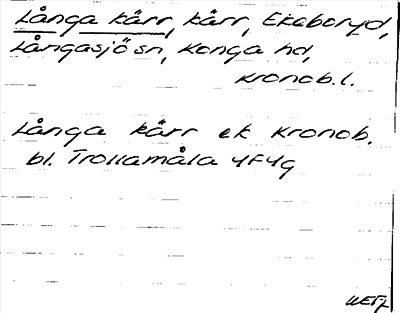 Långa kärr, kärr, Ekeboryd,
Långasjö sn, Konga hd,
Kronob. l.
Långa kärr ek Kronob.
bl. Trollamåla 4F4g